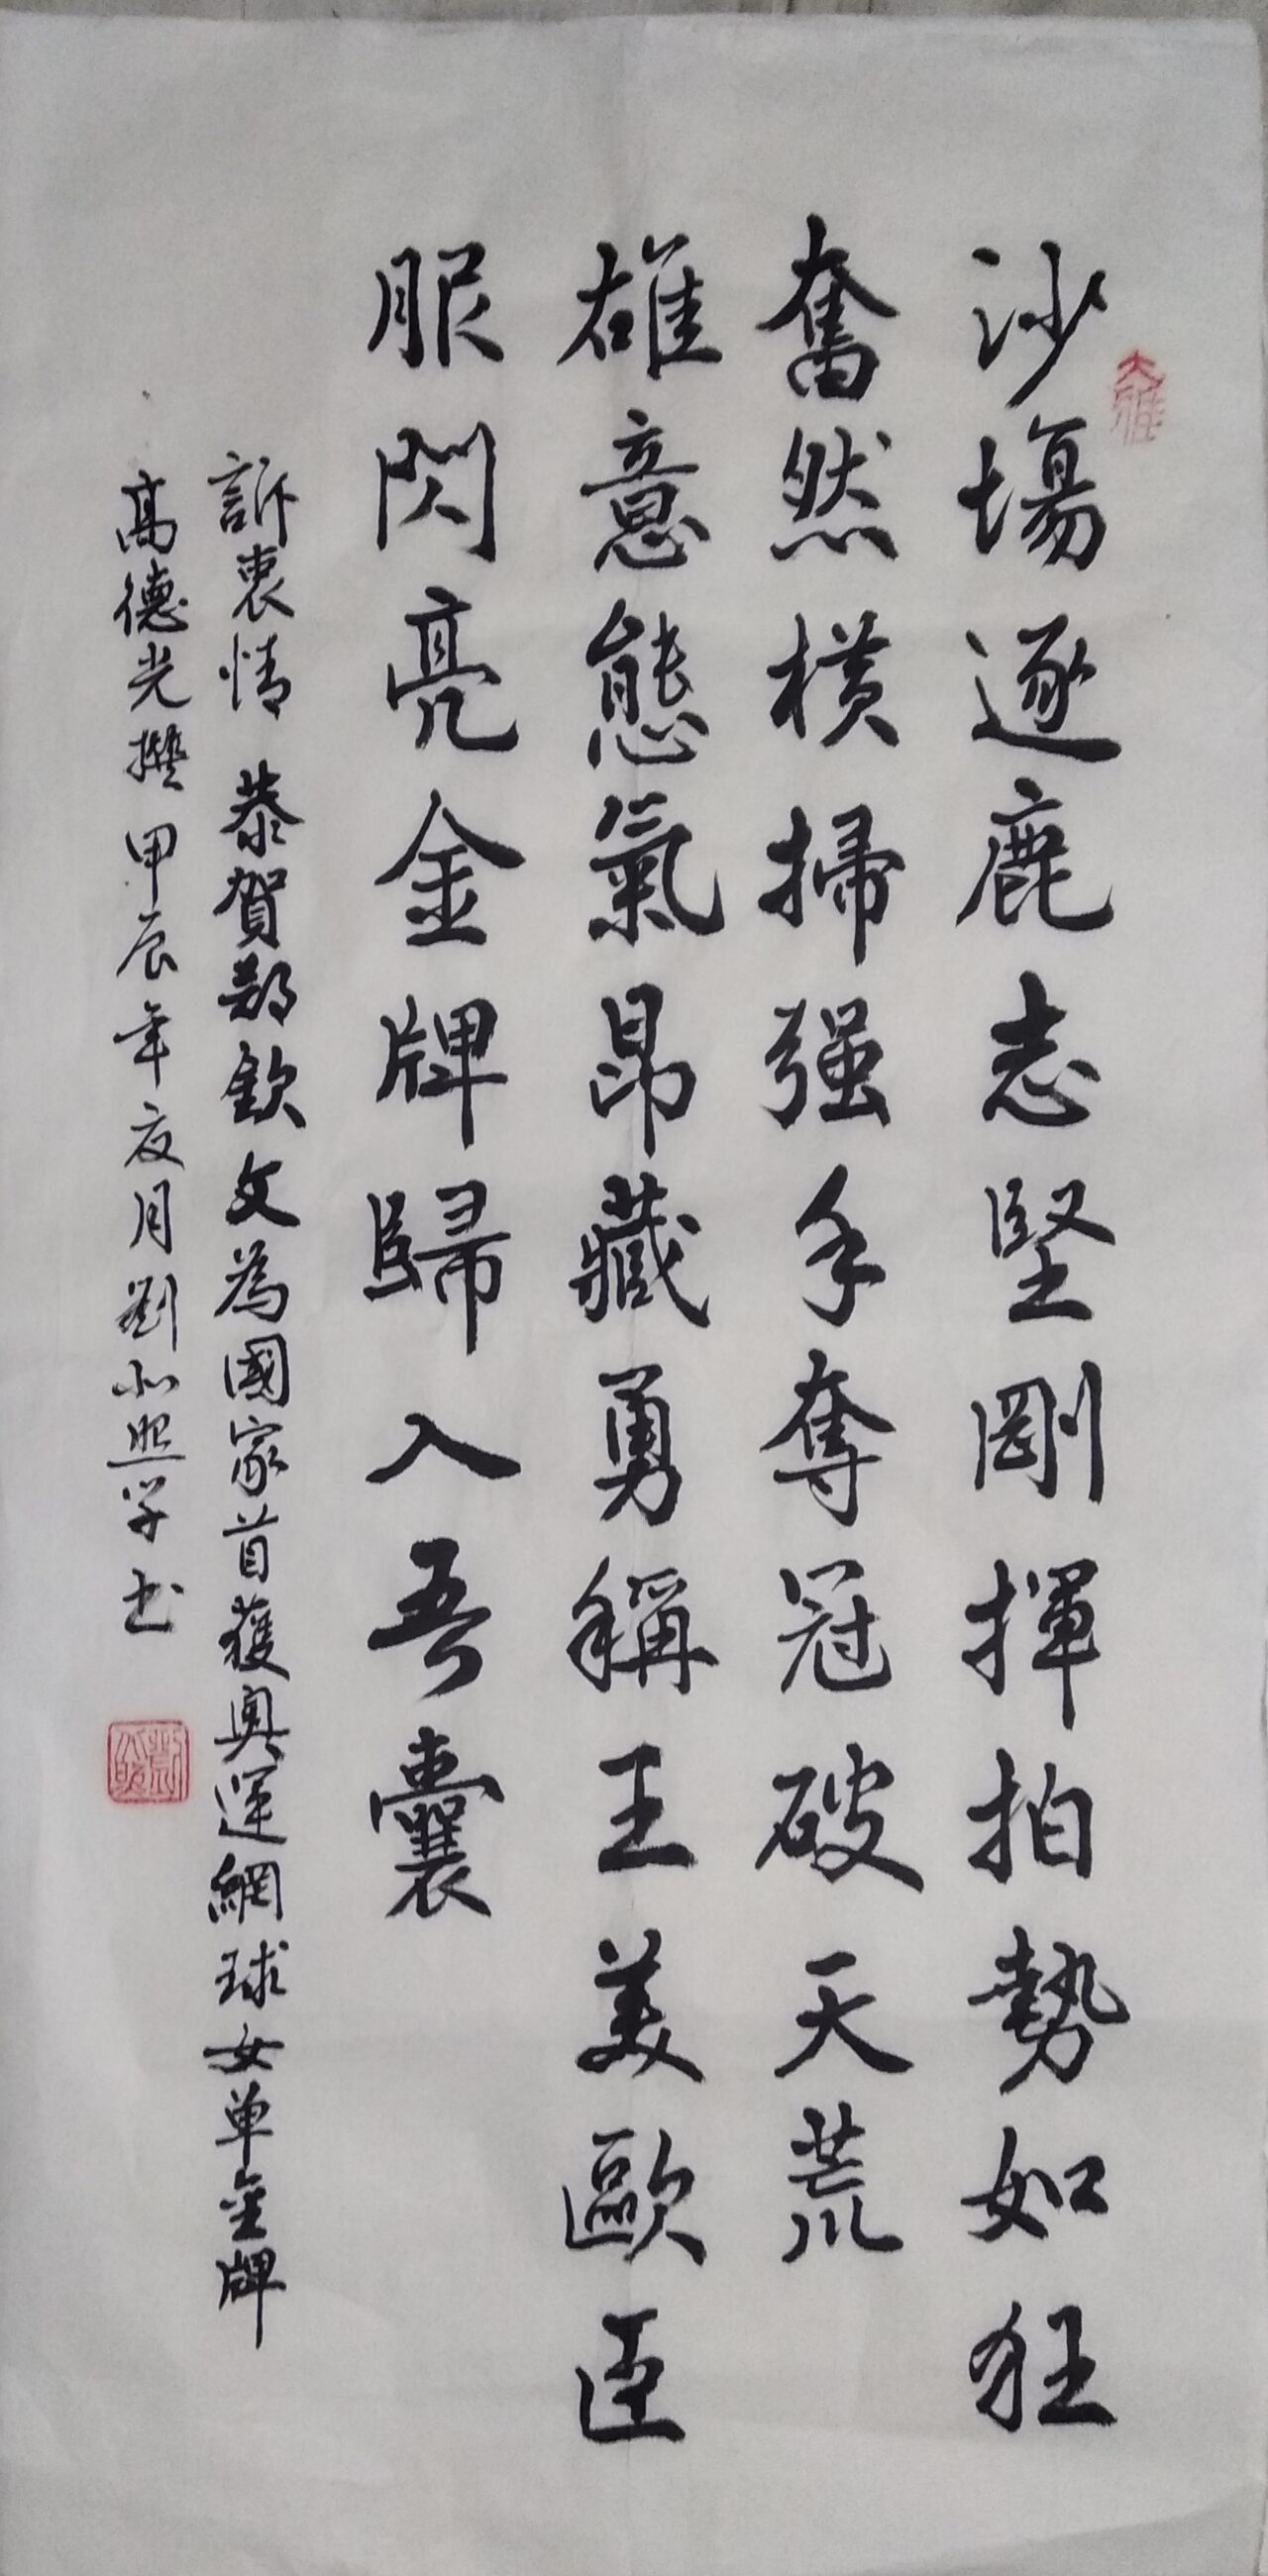 沙場逐鹿志堅剛揮拍勢如狂
奮然橫掃强手奪冠破天荒
雄意態氣昂藏勇稱王美歐臣
服閃亮金牌歸入吾囊
訴衷情 恭賀鄭欽文為國家首獲奧運網球女單金牌
高德光撰 甲辰年夜月劉小照学书
大雅